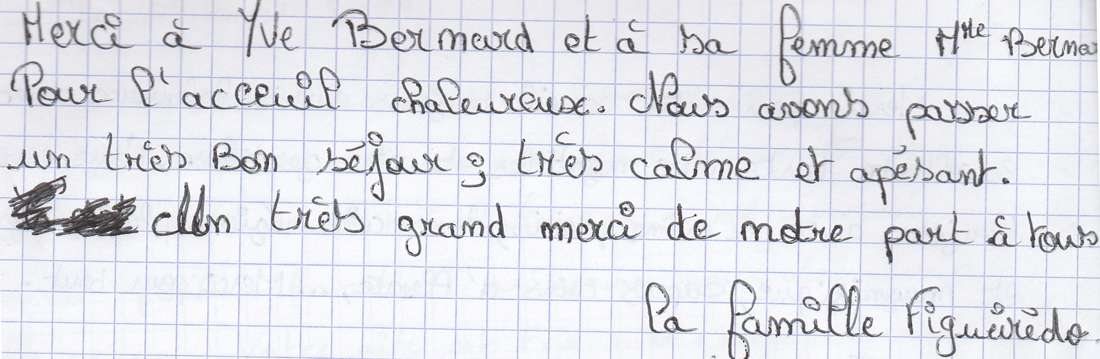 Merci à Yve Bernard et à sa femme Mme Berna
Pour l'acceuil chaleureuse. Nous avons passer
un très Bon séjour, très calme et apésant.
Un très grand merci de notre part à tous
la famille Figueirédo.